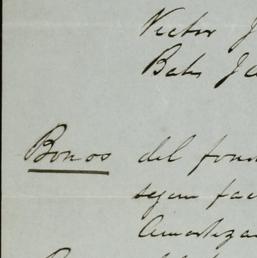 Victor J
Bates J
Bonos del fon
segun fac
Amortiza